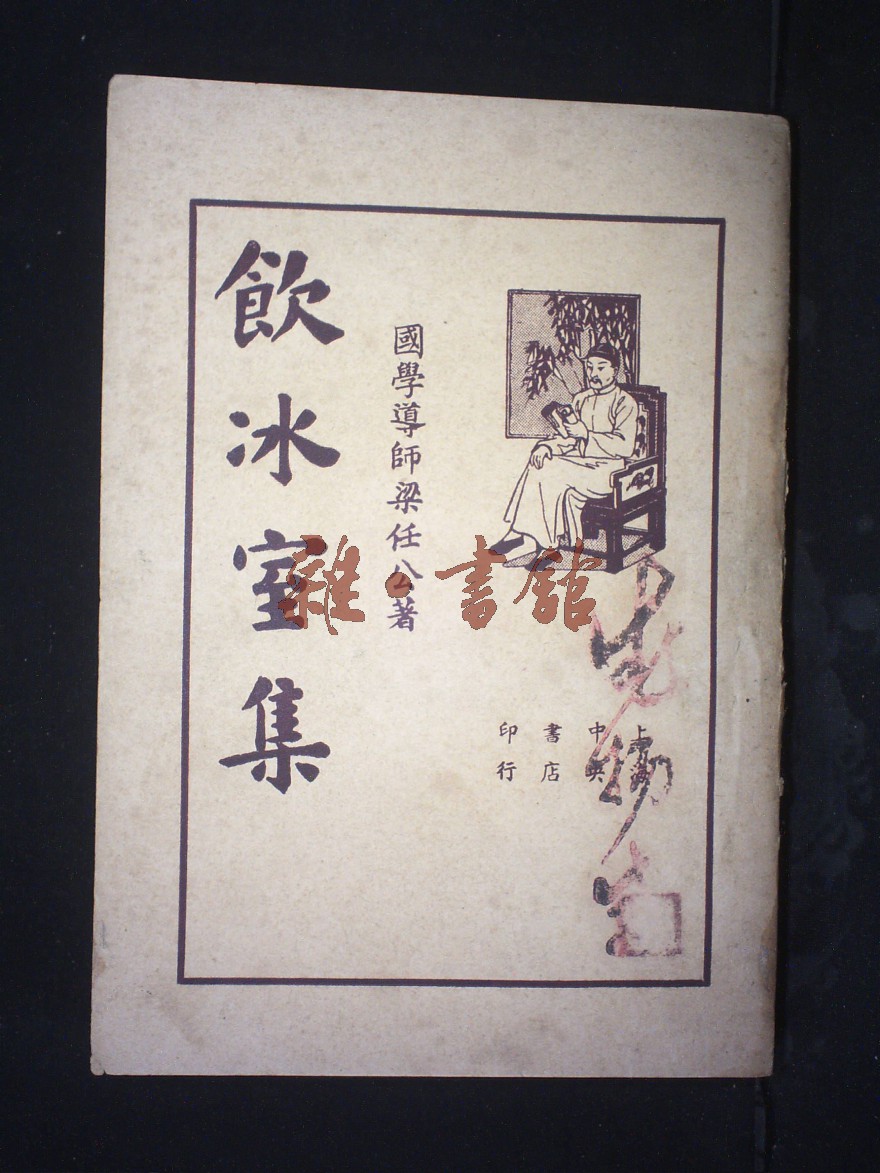 飲冰室集
國學導師梁任公著
上海
中央
書店
印行
雜·書館